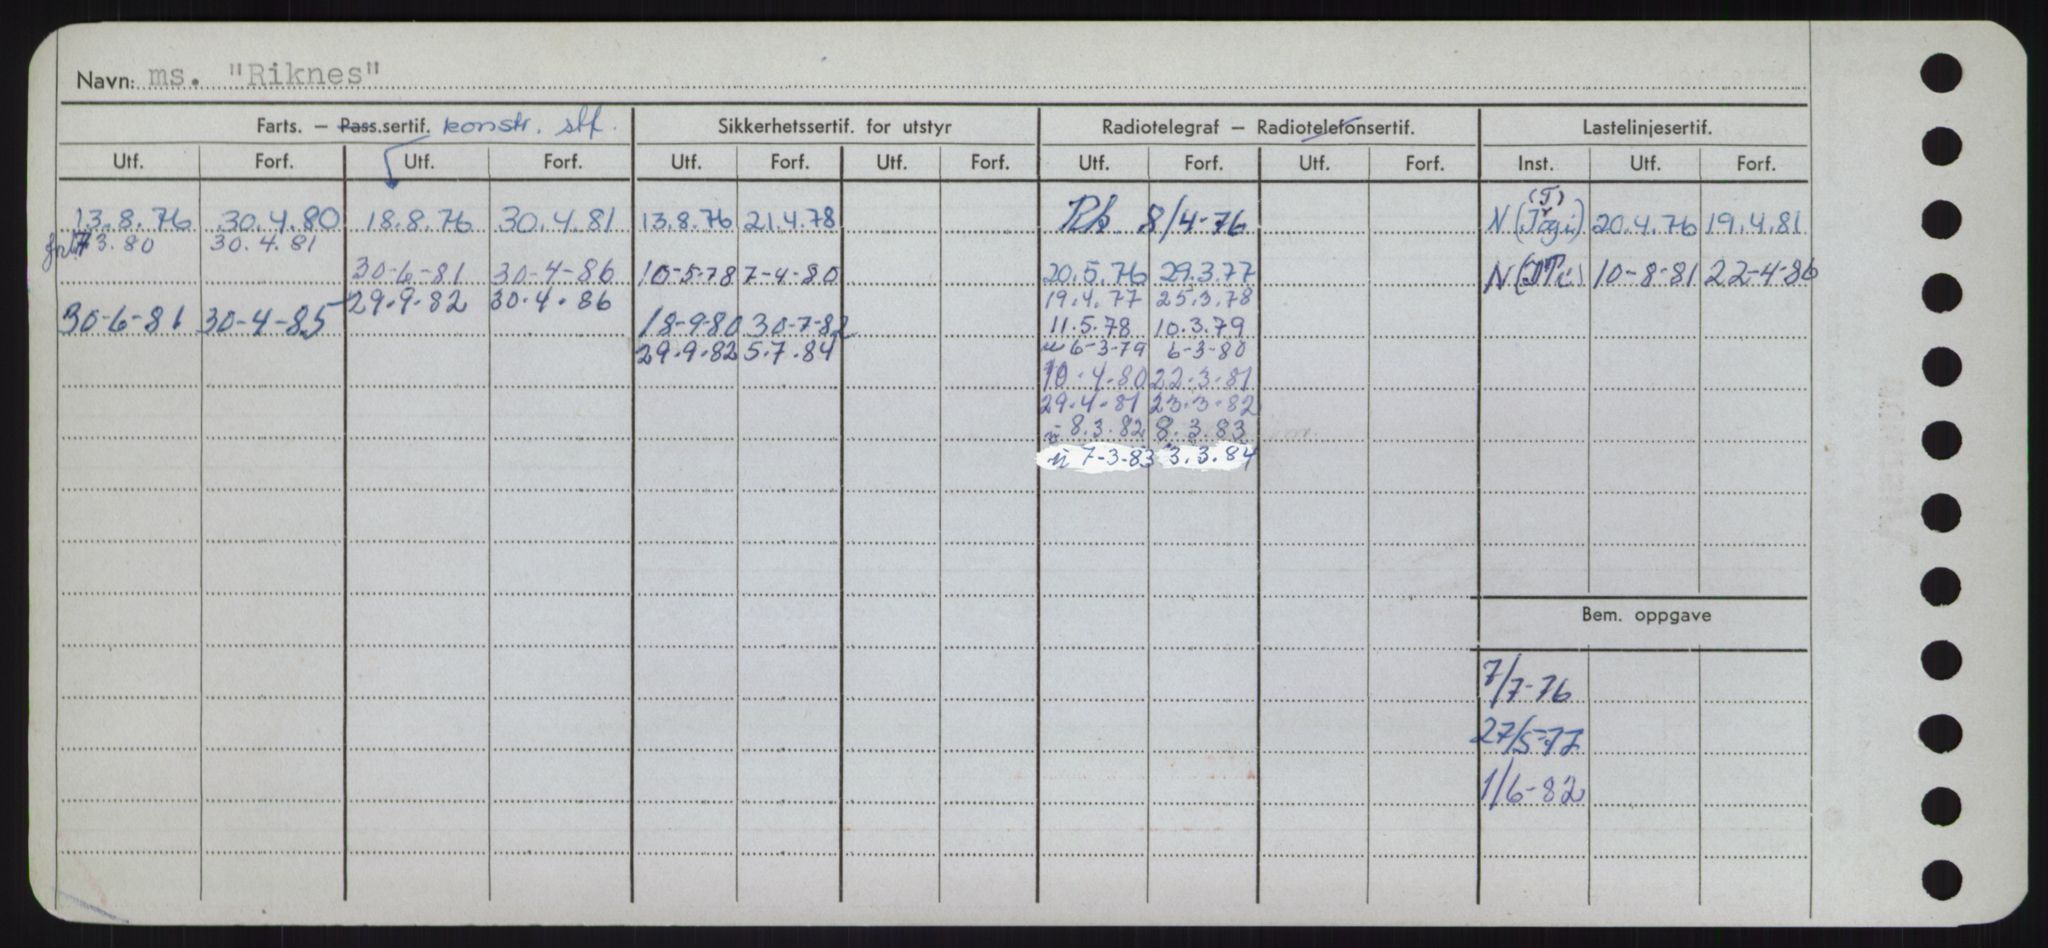 Navn: ms. "Riknes"
Farts. – Pass.sertif. konstr. stf. Sikkerhetssertif. for utstyr Radiotelegraf – Radiotelefonsertif. Lastelinjesertif.
Utf. Forf. Utf. Forf. Utf. Forf. Utf. Forf. Utf. Forf. Utf. Forf. Inst. Utf. Forf.
13.8.76 30.4.80 18.8.76 30.4.81 13.8.76 21.4.78 Rk 8/4-76 N 20.4.76 19.4.81
3.80 30.4.81
30-6-81 30-4-86 10-5-78 7-4-80 20.5.76 29.3.77 N 10-8-81 22-4-86
29.9.82 30.4.86 19.4.77 25.3.78
30-6-81 30-4-85 18-9-80 30-7-82 11.5.78 10.3.79
29.9.82 5.7.84 6-3-79 6-3-80
10.4.80 22.3.81
29.4.81 23.3.82
8.3.82 8.3.83
7-3-83 3.3.84
Bem. oppgave
7/7-76
27/5-77
1/6-82